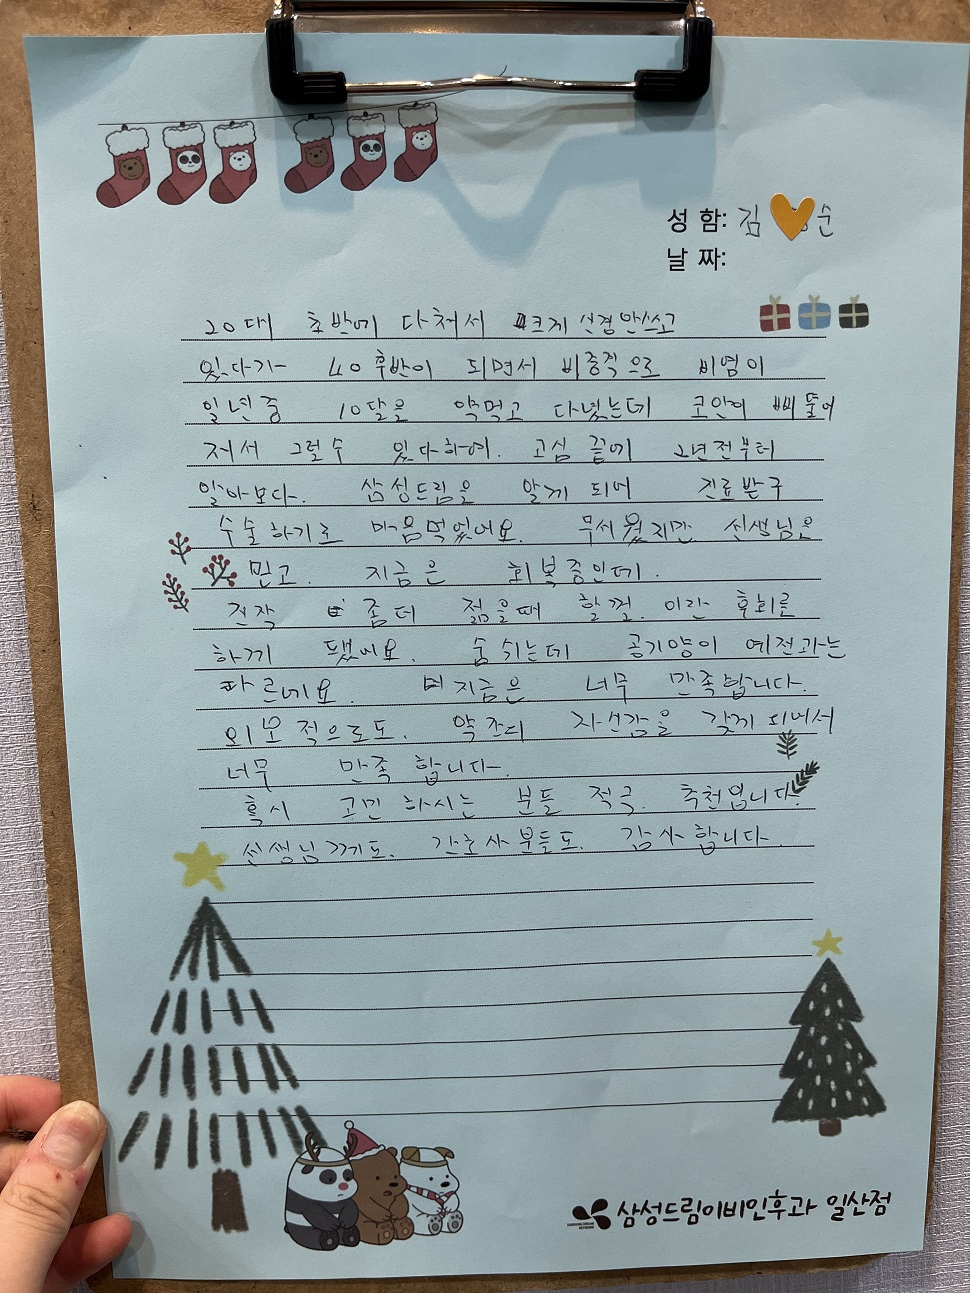 성 함: 김 순
날 짜:
20대 초반에 다쳐서 크게 신경안쓰고
있다가 40후반이 되면서 비중적으로 비염이
일년중 10달을 약먹고 다녔는데 코안이 삐뚤어
저서 그럴수 있다하여. 고심 끝에 2년전부터
알아보다. 삼성드림을 알게 되어 진료받구
수술하기로 마음먹었어요. 무서웠지만 선생님을
믿고. 지금은 회복중인데.
진작 좀더 젊을때 할껄. 이란 후회를
하게 됐어요. 숨쉬는데 공기양이 예전과는
따르네요. 지금은 너무 만족합니다.
외모적으로도. 약잔의 자신감을 갖게 되어서
너무 만족 합니다.
혹시 고민 하시는 분들 적극. 추천입니다.
선생님께도. 간호사분들도. 감사합니다.
삼성드림이비인후과 일산점